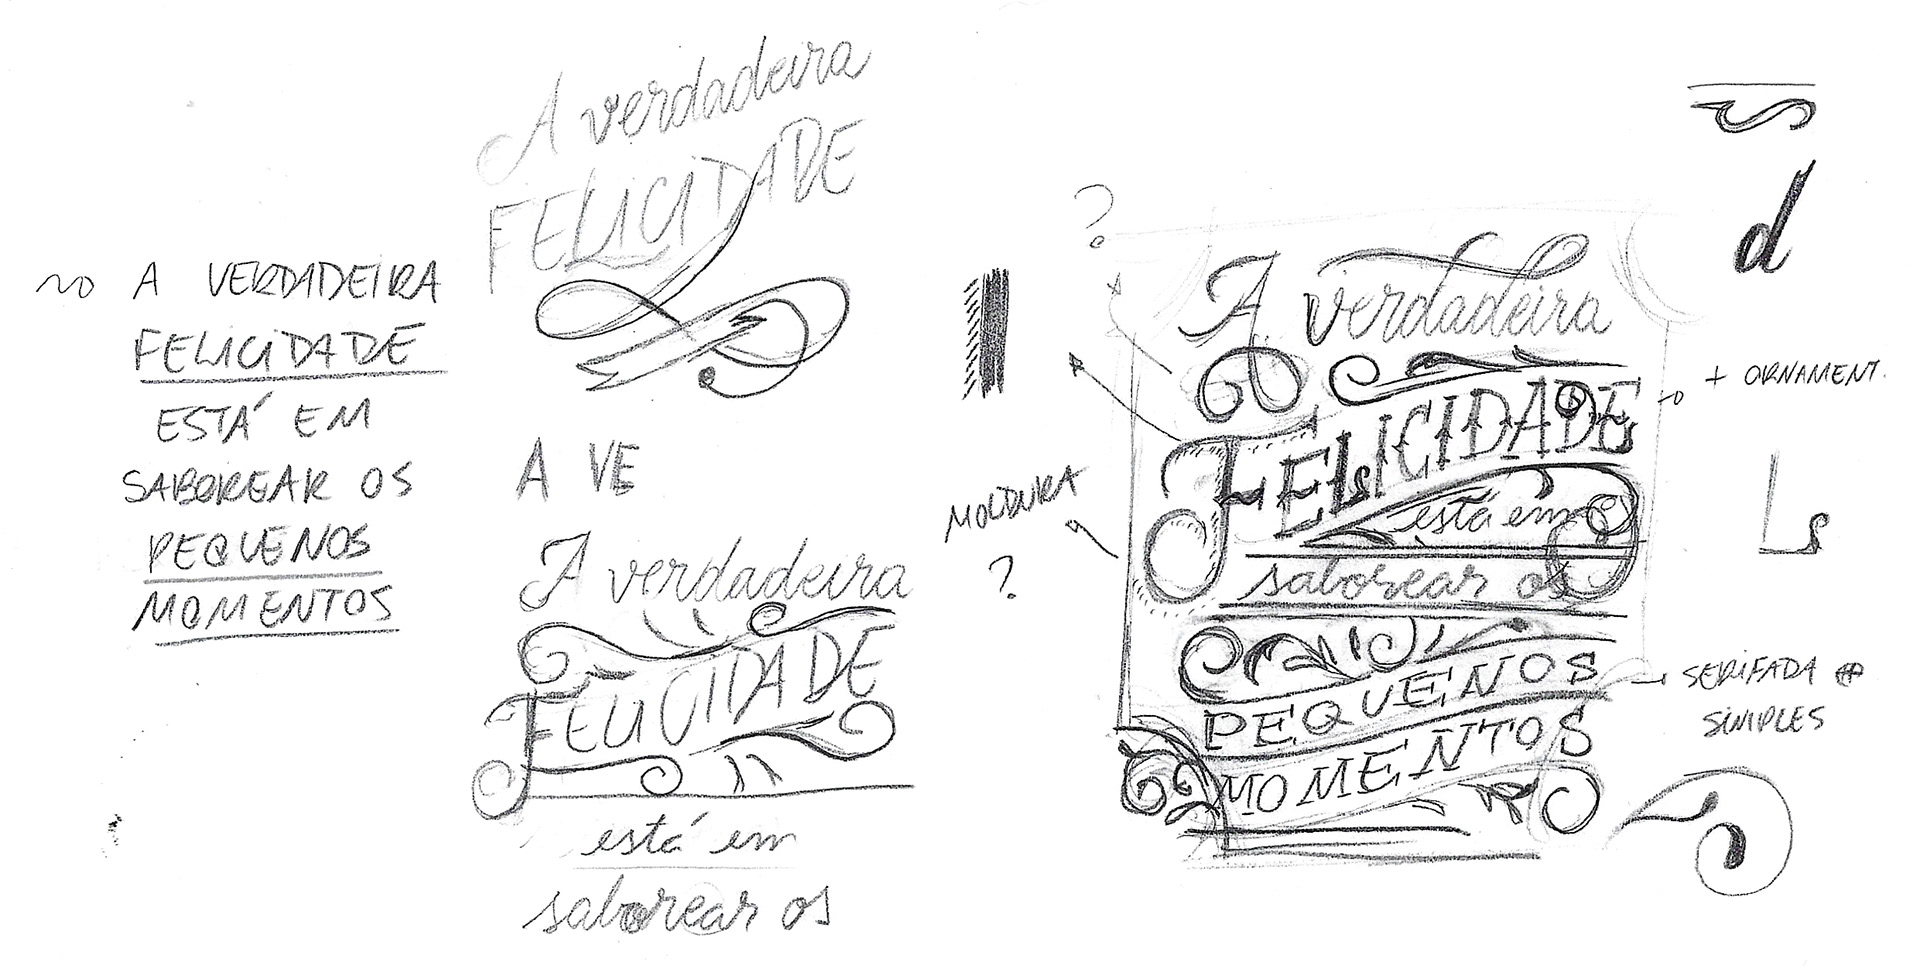 A VERDADEIRA
FELICIDADE
ESTÁ EM
SABOREAR OS
PEQUENOS
MOMENTOS
A verdadeira
FELICIDADE
A VE
A verdadeira
FELICIDADE
está em
saborear os
?
MOLDURA
?
A verdadeira
FELICIDADE
está em
saborear os
PEQUENOS
MOMENTOS
d
+ ORNAMENT.
L
SERIFADA
SIMPLES